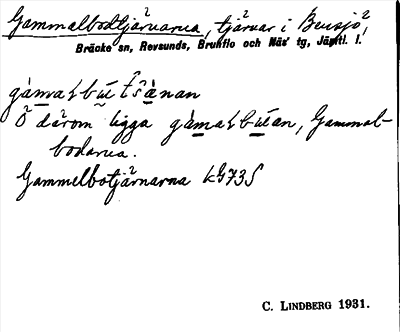 Gammelbodtjärnarna, tjärnar i Bensjö,
Bräcke sn, Revsunds, Brunflo och Näs tg, Jämtl. l.
gàmalbu̇ t̂s̀ànan
Ö därom ligga gàmalbúan, Gammal-
bodarna.
Gammelbotjärnarna kG73S
C. LINDBERG 1931.